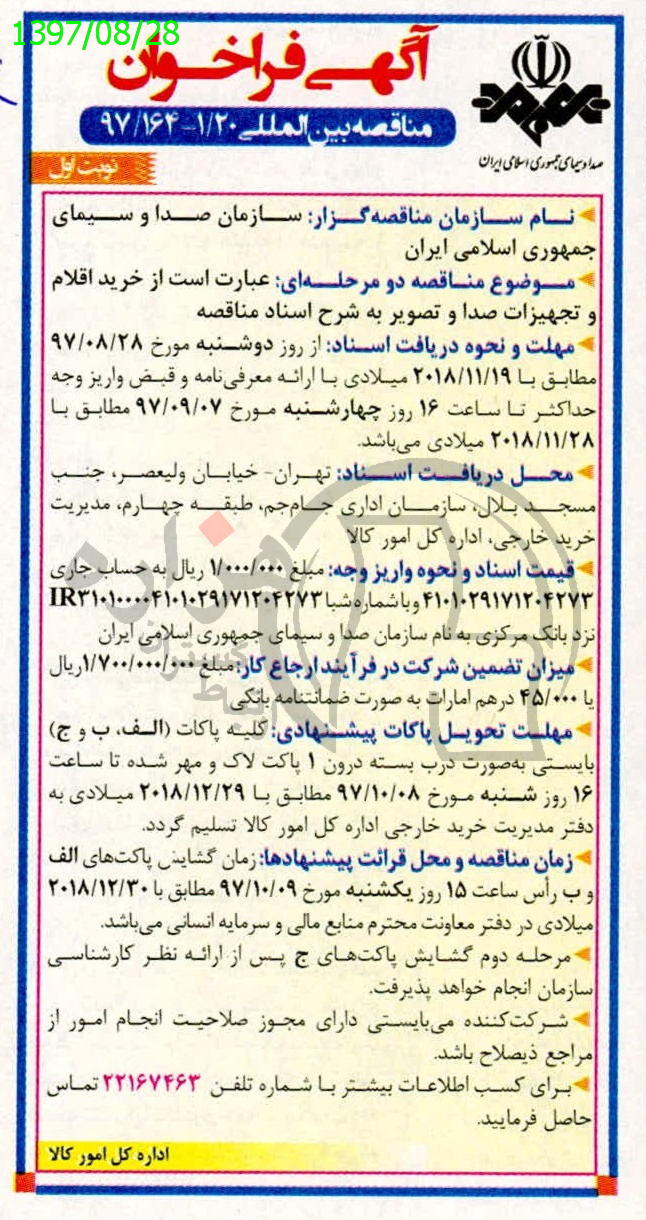 1397/08/28
آگهی فراخوان
مناقصه بین‌المللی ۱/۲۰-۹۷/۱۶۴
صدا و سیمای جمهوری اسلامی ایران
نوبت اول
نـام سـازمان مناقصه‌گـزار: سـازمان صـدا و سـیمای
جمهوری اسلامی ایران
موضوع مناقصه دو مرحله‌ای: عبارت است از خرید اقلام
و تجهیزات صدا و تصویر به شرح اسناد مناقصه
مهلت و نحوه دریافت اسناد: از روز دوشنبه مورخ ۹۷/۰۸/۲۸
مطابق با ۲۰۱۸/۱۱/۱۹ میلادی با ارائه معرفی‌نامه و قبض واریز وجه
حداکثر تا ساعت ۱۶ روز چهارشنبه مورخ ۹۷/۰۹/۰۷ مطابق با
۲۰۱۸/۱۱/۲۸ میلادی می‌باشد.
محل دریافت اسناد: تهران- خیابان ولیعصر، جنب
مسجد بلال، سازمان اداری جام‌جم، طبقه چهارم، مدیریت
خرید خارجی، اداره کل امور کالا
قیمت اسناد و نحوه واریز وجه: مبلغ ۱/۰۰۰/۰۰۰ ریال به حساب جاری
۴۱۰۱۰۲۹۱۷۱۲۰۴۲۷۳ و با شماره شبا IR۳۱۰۱۰۰۰۰۴۱۰۱۰۲۹۱۷۱۲۰۴۲۷۳
نزد بانک مرکزی به نام سازمان صدا و سیمای جمهوری اسلامی ایران
میزان تضمین شرکت در فرآیند ارجاع کار: مبلغ ۱/۷۰۰/۰۰۰/۰۰۰ ریال
یا ۴۵/۰۰۰ درهم امارات به صورت ضمانتنامه بانکی
مهلت تحویل پاکات پیشنهادی: کلیه پاکات (الف، ب و ج)
بایستی به‌صورت درب بسته درون ۱ پاکت لاک و مهر شده تا ساعت
۱۶ روز شنبه مورخ ۹۷/۱۰/۰۸ مطابق با ۲۰۱۸/۱۲/۲۹ میلادی به
دفتر مدیریت خرید خارجی اداره کل امور کالا تسلیم گردد.
زمان مناقصه و محل قرائت پیشنهادها: زمان گشایش پاکت‌های الف
و ب رأس ساعت ۱۵ روز یکشنبه مورخ ۹۷/۱۰/۰۹ مطابق با ۲۰۱۸/۱۲/۳۰
میلادی در دفتر معاونت محترم منابع مالی و سرمایه انسانی می‌باشد.
مرحله دوم گشایش پاکت‌های ج پس از ارائه نظر کارشناسی
سازمان انجام خواهد پذیرفت.
شرکت‌کننده می‌بایستی دارای مجوز صلاحیت انجام امور از
مراجع ذیصلاح باشد.
برای کسب اطلاعات بیشتر با شماره تلفن ۲۲۱۶۷۴۶۳ تماس
حاصل فرمایید.
اداره کل امور کالا